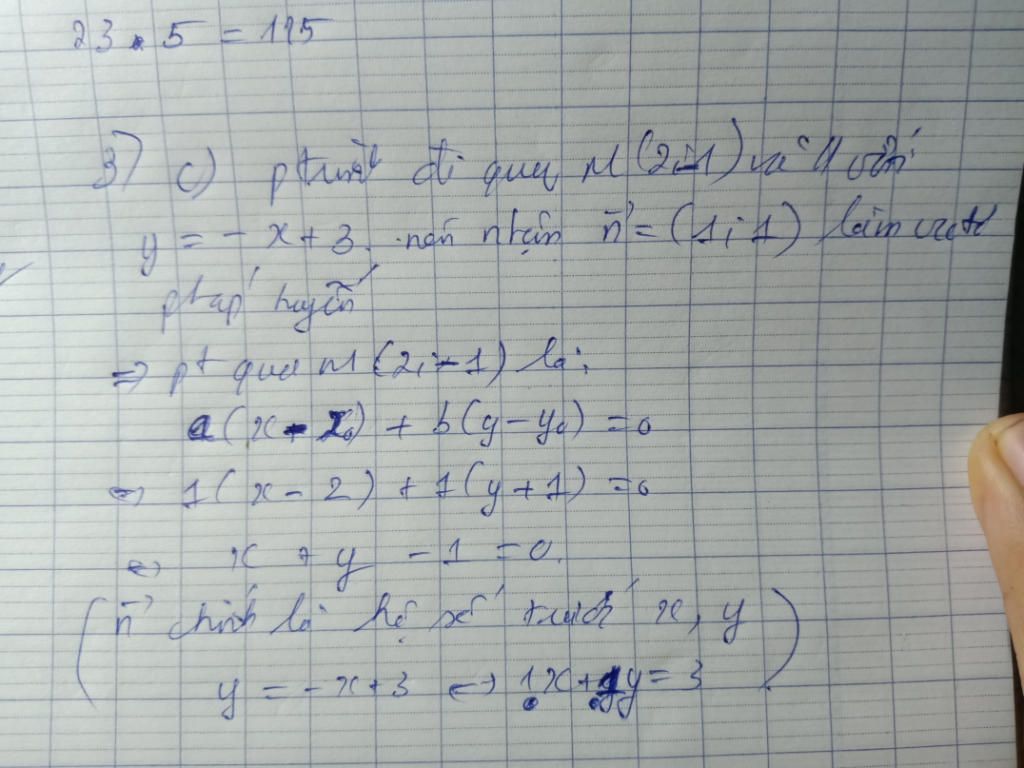 23 . 5 = 115
3) c) ptđt đi qua M(2;-1) và // với
y = - x + 3 nên nhận n⃗ = (1; 1) làm vectơ
pháp tuyến
=> pt qua M(2;-1) là:
a(x - x₀) + b(y - y₀) = 0
⇔ 1(x - 2) + 1(y + 1) = 0
⇔ x + y - 1 = 0.
(n⃗ chính là hệ số trước x, y
y = -x + 3 ⇔ 1x + 1y = 3)